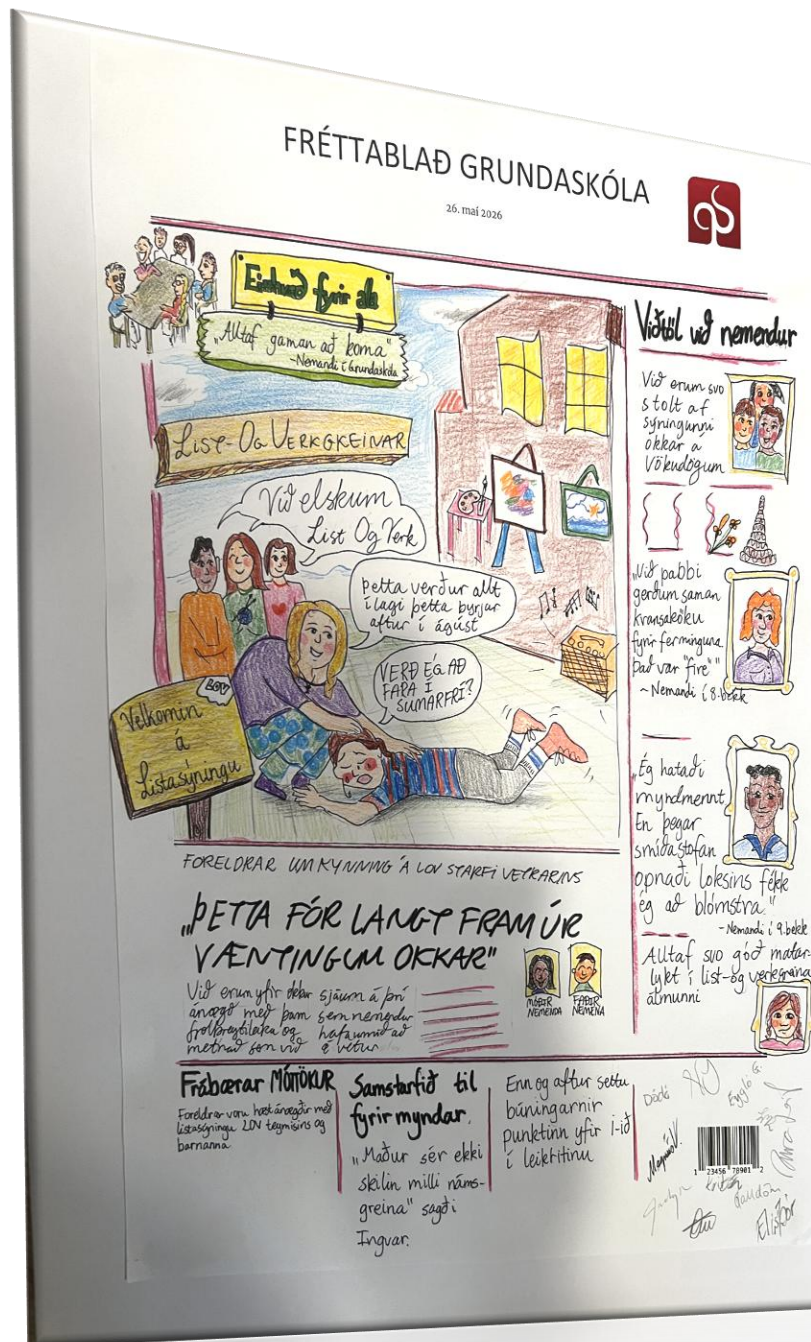 FRÉTTABLAÐ GRUNDASKÓLA
26. maí 2026
Eitthvað fyrir alla
„Alltaf gaman að koma"
-Nemandi í Grundaskóla
LIST- OG VERKGREINAR
Við elskum
List Og Verk
Þetta verður allt
í lagi þetta byrjar
aftur í ágúst
VERÐ ÉG AÐ
FARA Í
SUMARFRÍ?
LOV
Velkomin
á
Listasýningu
FORELDRAR UM KYNNING Á LOV STARFI VETRARINS
„ÞETTA FÓR LANGT FRAM ÚR
VÆNTINGUM OKKAR"
Við erum yfir okkar
ánægð með þann
og
metnað sem við
sjáum á því
sem nemendur
hafa unnið að
í vetur
MÓÐIR
NEMENDA
FAÐIR
NEMENA
Viðtöl við nemendur
Við erum svo
stolt af
sýningunni
okkar á
Vökudögum
„Við pabbi
gerðum saman
kransaköku
fyrir ferminguna
það var "fire""
~ Nemandi í 8. bekk
„Ég hataði
myndmennt
En þegar
smíðastofan
opnaði loksins fékk
ég að blómstra."
-Nemandi í 9. bekk
Alltaf svo góð matar-
lykt í list-og verkgreina
álmunni
Frábærar MÓTTÖKUR
Foreldrar voru hæst ánægðir með
listasýningu LOV teymisins og
barnanna
Samstarfið til
fyrirmyndar.
„Maður sér ekki
skilin milli náms-
greina" sagði
Ingvar.
Enn og aftur settu
búningarnir
punktinn yfir i-ið
í leikritinu
Eygló G.
1 23456 78901 2
Kristín
Elinbór